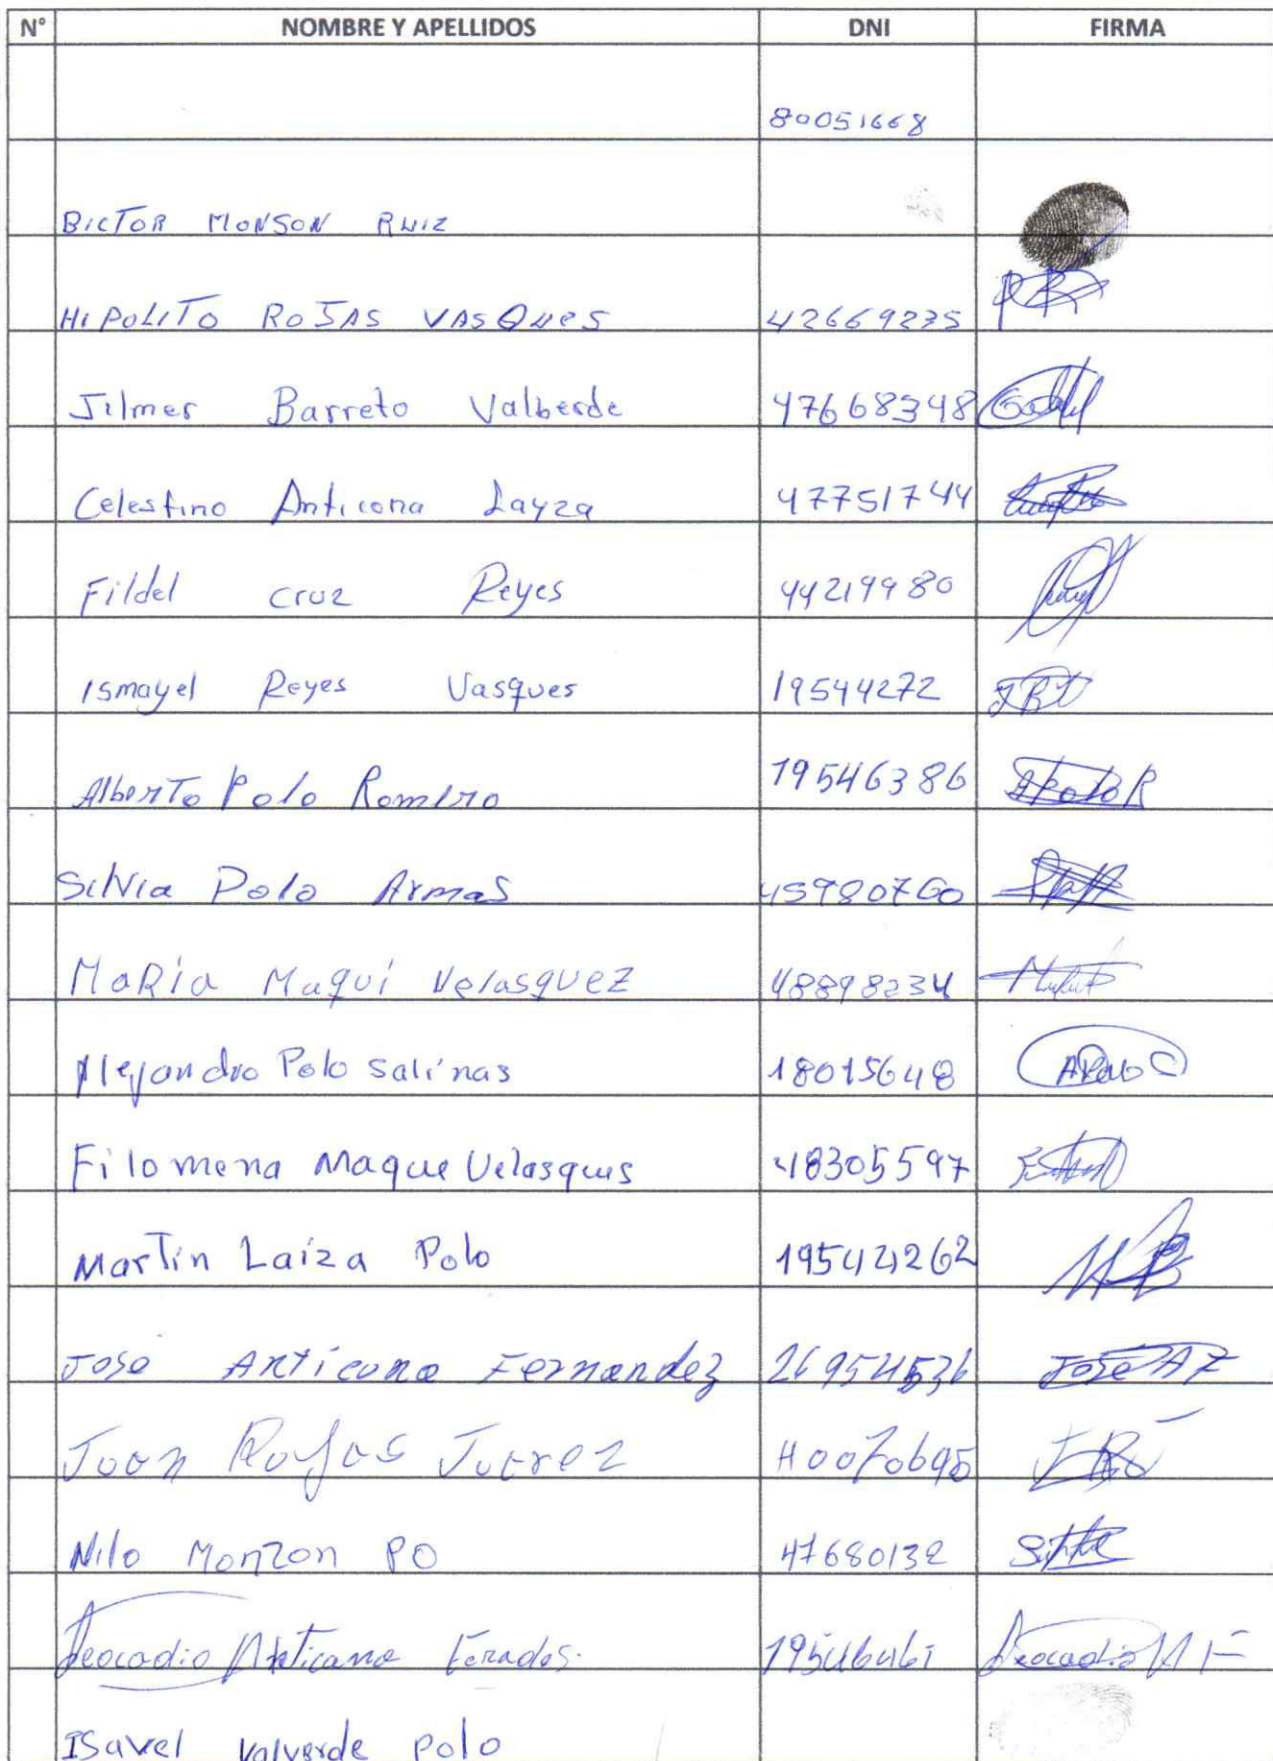 N° NOMBRE Y APELLIDOS DNI FIRMA
80051668
BICTOR MONSON RUIZ
HIPOLITO ROJAS VASQUES 42669235
Jilmer Barreto Valberde 47668348
Celestino Anticona Layza 47751744
Fildel Cruz Reyes 44219980
Ismayel Reyes Vasques 19544272
Alberto Polo Romero 19546386
Silvia Polo Armas 45980760
MaRia Maqui Velasquez 48898234
Alejandro Polo Salinas 18015648 APoloC
Filomena Maque Velasques 48305597
Martin Laiza Polo 19542262
Jose Anticona Fernandez 26954536 Jose AF
Juan Rojas Juarez
Nilo Monzon PO 47680132
Leocadio Anticana Leocadio A F
ISavel Valverde Polo